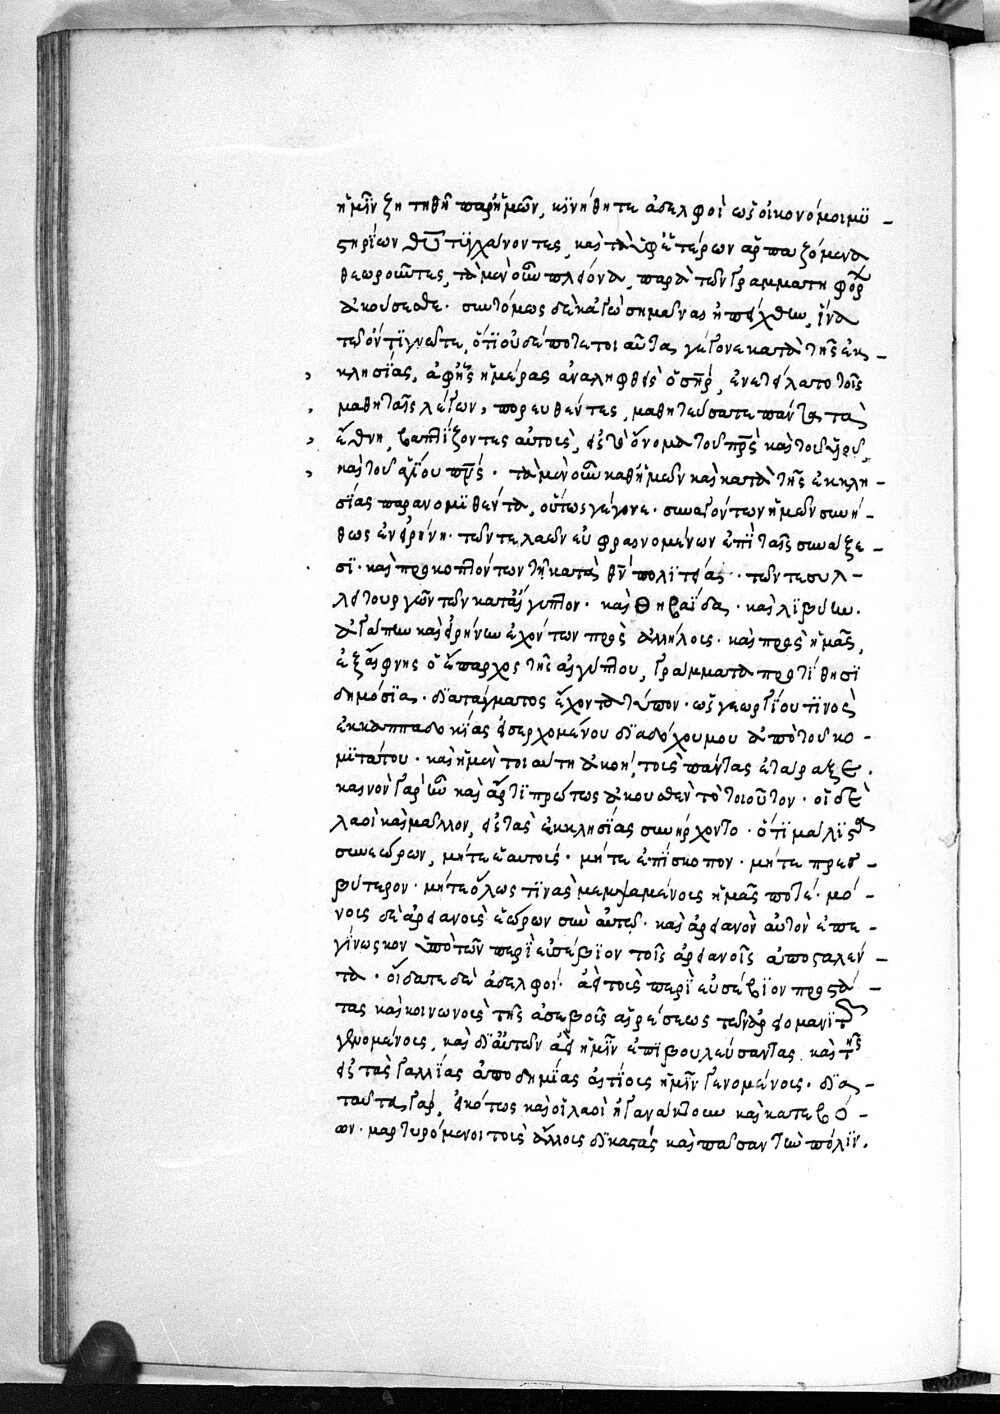 ἡμῖν ζητηθῆ παρ' ἡμῶν, κϊνήθητε ἀδελφοὶ ὡς οἰκονόμοι μϋ-
στηρίων θῦ τϋγχάνοντες, καὶ τὰ ὑφ' ἑτέρων ἁρπαζόμενα
θεωροῦντες, τὰ μὲν οὖν πλείονα, παρὰ τῶν γραμματηφόρ
ἀκούσεσθε. συντόμως δὲ κἀγὼ σημᾶναι ἠπείχθην, ἵνα
τῶ ὄντϊ γνῶτε, ὅτϊ οὐδέποτε τοιαῦτα, γέγονε κατὰ τῆς ἐκ-
κλησΐας, ἀφ' ἧς ἡμέρας ἀναληφθεὶς ὁ σῆρ, ἐνετείλατο τοῖς
μαθηταῖς λέγων, πορευθέντες, μαθητεύσατε πάντα τὰ
ἔθνη, βαπτΐζοντες αὐτοὺς, εἰς τὸ ὄνομα τοῦ πρς καὶ τοῦ υἱοῦ,
καὶ τοῦ ἁγίου πνς. τὰ μὲν οὖν καθ' ἡμῶν καὶ κατὰ τῆς ἐκκλη-
σΐας παρανομϊθέντα, οὕτως γέγονε. συναγόντων ἡμῶν συνή-
θως ἐν εἰρήνη. τῶν τε λαῶν εὐφραινομένων ἐπὶ ταῖς συνάξε-
σϊ. καὶ προκοπτόντων τῆ κατὰ θν πολϊτεία. τῶν τε συλ-
λειτουργῶν τῶν κατ' αἴγυπτον. καὶ θηβαΐδα. καὶ λϊβύην.
ἀγάπην καὶ εἰρήνην ἐχόντων πρὸς ἀλλήλους. καὶ πρὸς ἡμᾶς,
ἐξαίφνης ὁ ἔπαρχος τῆς αἰγύπτου, γράμματα προτΐθησϊ
δημόσϊα. δϊατάγματος ἔχοντα τύπον. ὡς γεωργΐου τϊνὸς
ἐκ καππαδοκΐας εἰσερχομένου δϊαδόχου μου ἀπὸ τοῦ κο-
μϊτάτου. καὶ ἡ μέν τοι αὕτη ἀκοὴ, τοὺς πάντας ἐτάραξε.
καινὸν γὰρ ἦν καὶ ἄρτϊ πρώτως ἀκουσθὲν τὸ τοιοῦτον. οἱ δὲ
λαοὶ καὶ μᾶλλον, εἰς τὰς ἐκκλησΐας συνήρχοντο. ὅτϊ μάλϊστα
συνεώρων, μήτε ἑαυτούς. μήτε ἐπΐσκοπον. μήτε πρεσ-
βύτερον. μήτε ὅλως τϊνὰς μεμψαμένους ἡμᾶς ποτέ. μό-
νους δὲ ἀρειανοὺς ἑώρων σὺν αὐτῶ. καὶ ἀρειανὸν αὐτὸν ἐπε-
γΐνωσκον ὑπὸ τῶν περὶ εὐσέβϊον τοῖς ἀρειανοῖς ἀποσταλέν-
τα. οἴδατε δὲ ἀδελφοί. ἀεὶ τοὺς περὶ εὐσέβϊον προστά-
τας καὶ κοινωνοὺς τῆς ἀσεβοῦς αἱρέσεως τῶν ἀρειομανϊτ
γενομένους, καὶ δϊ' αὐτῶν ἀεὶ ἡμῖν ἐπϊβουλεύσαντας, καὶ τῆς
εἰς τὰς γαλλΐας ἀποδημΐας αἰτΐους ἡμῖν γενομένους. δϊὰ
ταῦτα γὰρ, εἰκότως καὶ οἱ λαοὶ ἠγανάκτουν καὶ κατεβό-
ων. μαρτυρόμενοι τοὺς ἄλλους δϊκαστὰς καὶ πᾶσαν τὴν πόλϊν.